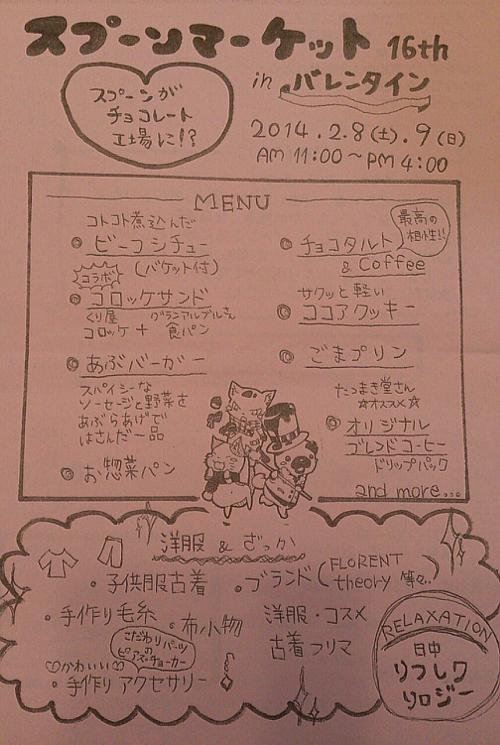 スプーンマーケット 16th
in バレンタイン
スプーンが
チョコレート
工場に!?
2014.2.8(土).9(日)
AM 11:00～PM 4:00
MENU
コトコト煮込んだ
◎ ビーフシチュー
(バケット付)
コラボ
◎ コロッケサンド
くり屋 グランアルブルさん
コロッケ + 食パン
◎ あぶバーガー
スパイシーな
ソーセージと野菜を
あぶらあげで
はさんだ一品
◎ お惣菜パン
最高の
相性!!
◎ チョコタルト
& Coffee
サクッと軽い
◎ ココアクッキー
◎ ごまプリン
たつまき堂さん
☆オススメ☆
◎ オリジナル
ブレンドコーヒー
ドリップパック
and more...
洋服 & ざっか
・子供服古着
・ブランド(FLORENT
theory 等..)
・手作り毛糸
・布小物
洋服・コスメ
古着フリマ
こだわりパーツ
の
ピアス・チョーカー
♡かわいい♡
・手作り アクセサリー
RELAXATION
日中
リフレク
ソロジー